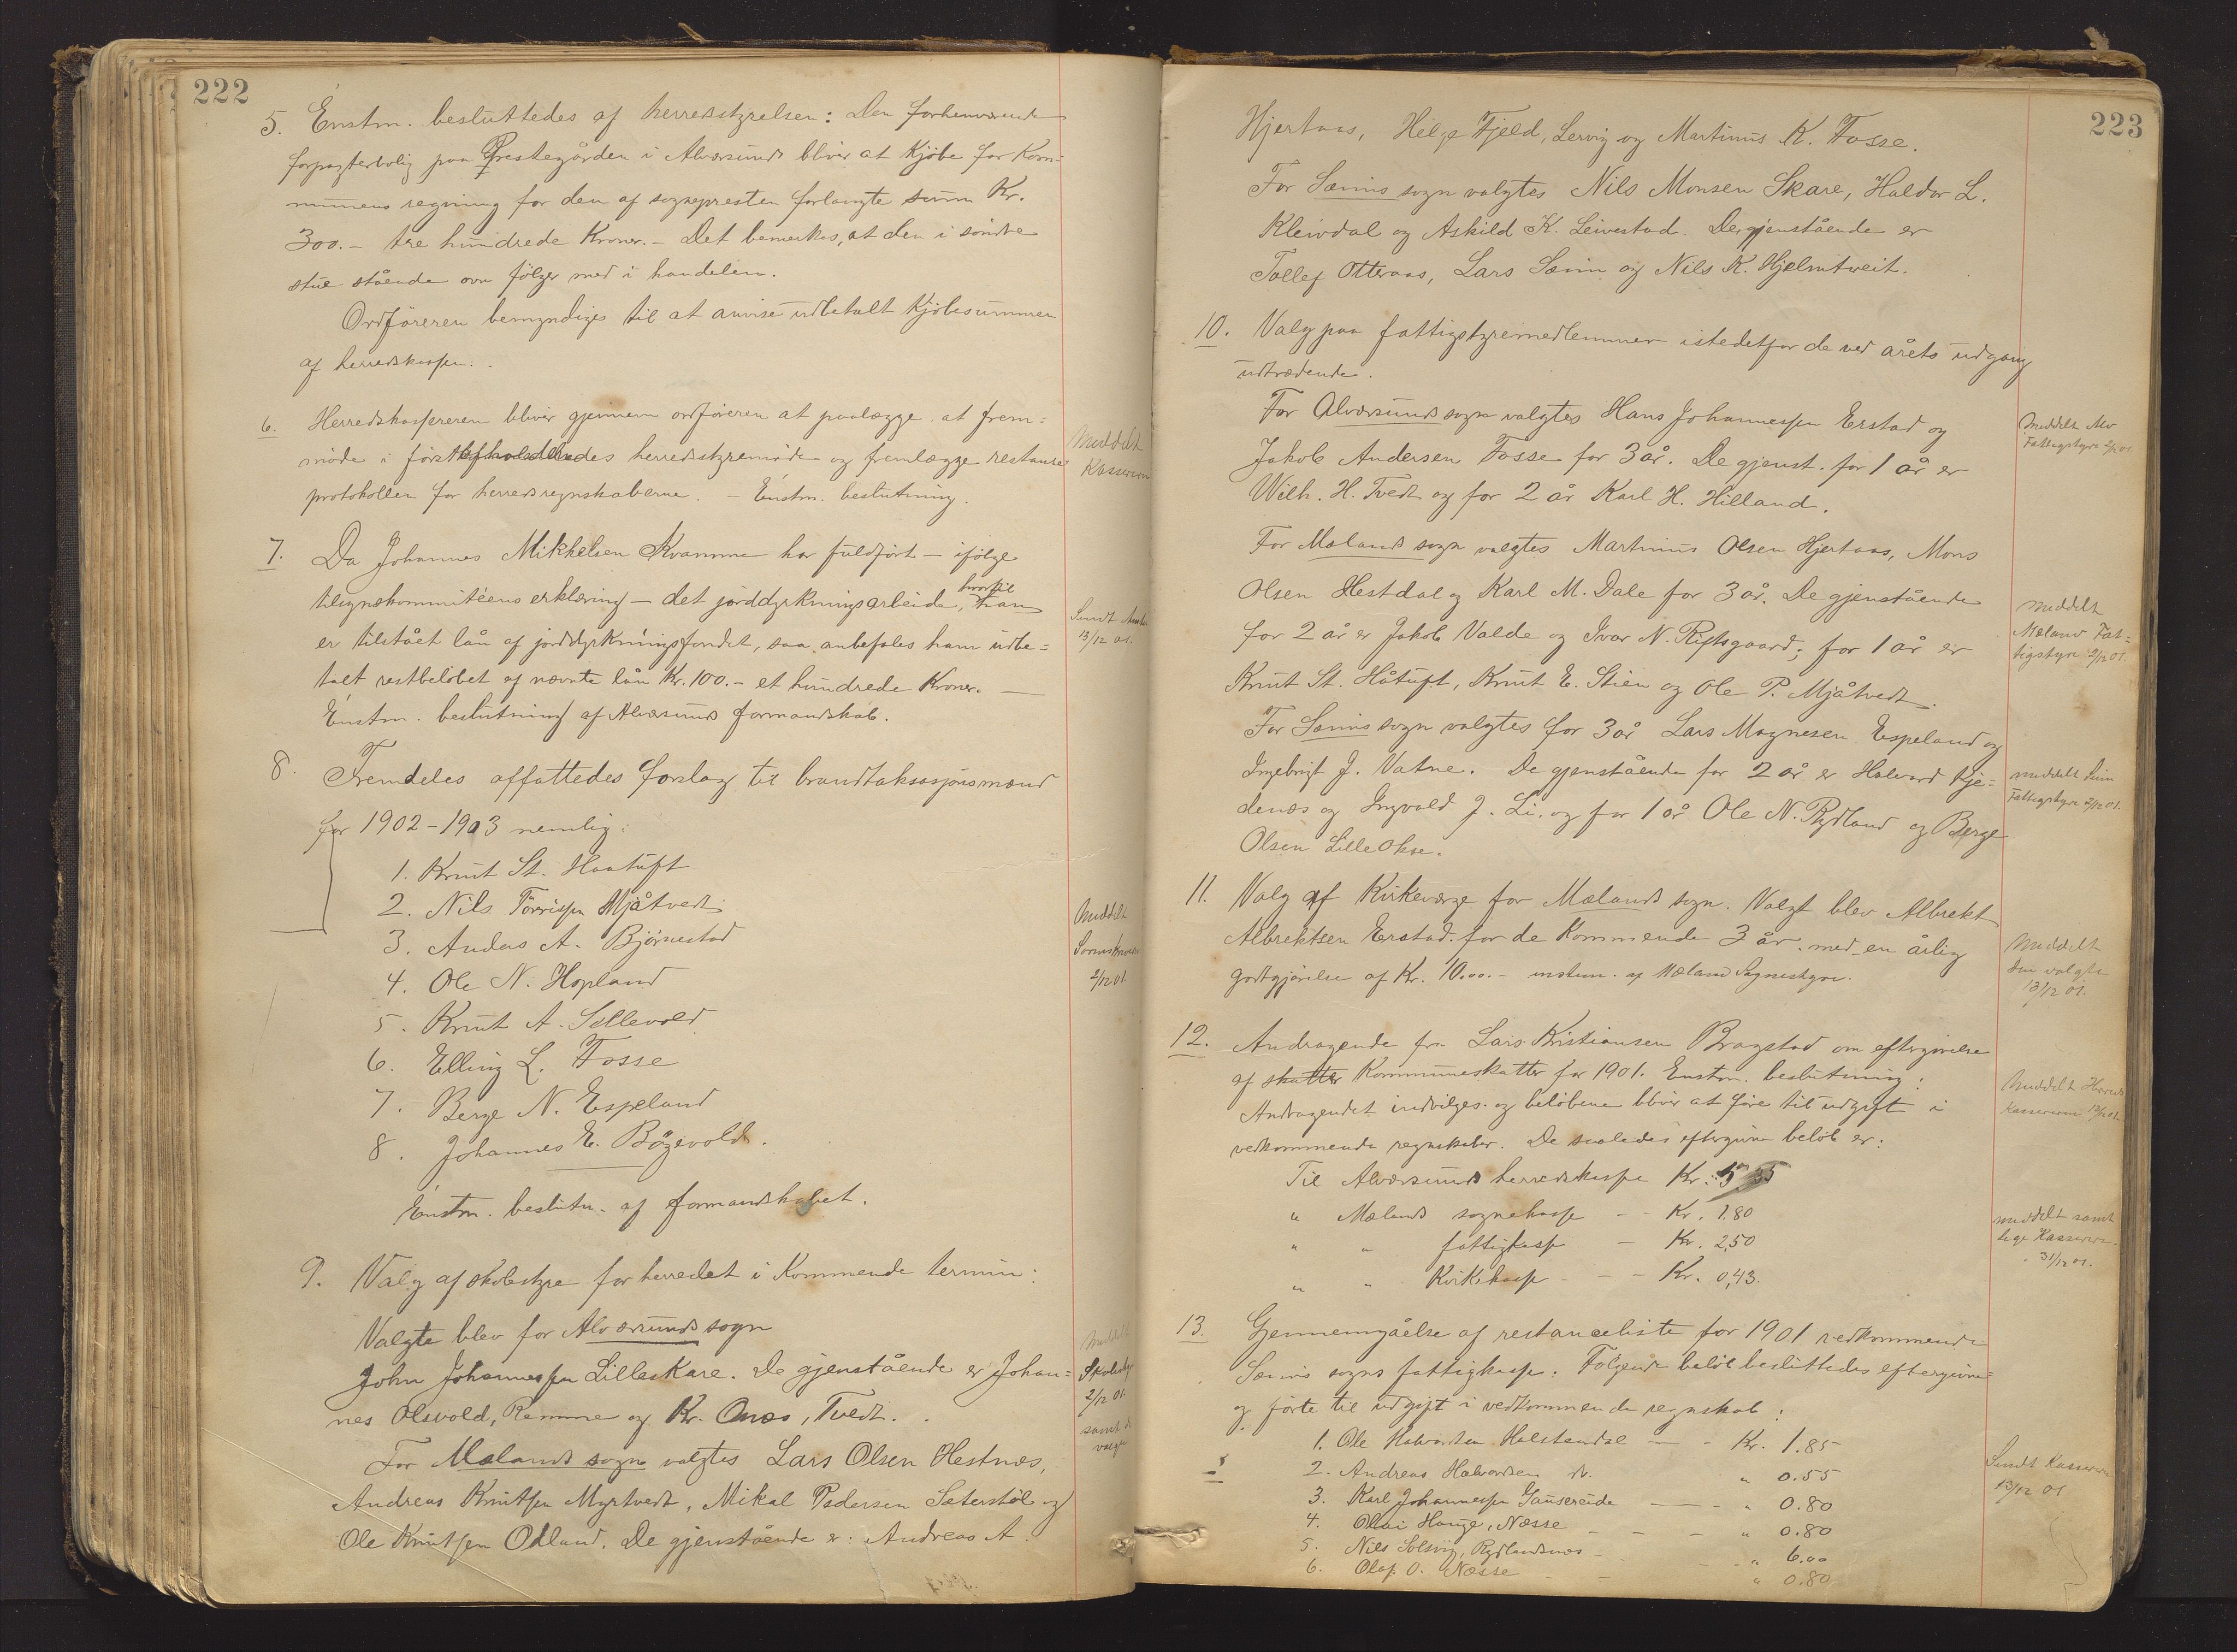 222
5. Enstm. besluttedes af herredsstyrelsen: Den forhenværende
forpagterbolig paa Prestegården i Alværsund bliver at kjöbe for Kom-
munens regning for den af sognepresten forlangte sum Kr.
300.- tre hundrede Kroner. - Det bemerkes, at den i söndre
stue stående ovn fölger med i handelen.
Ordföreren bemyndiges til at anvise udbetalt kjöbesummen
af herredskassen.
6. Herredskassereren bliver gjennem ordföreren at paalægge at frem-
möde i först afholdendes herredsstyremöde og fremlægge restance
protokollen for herredsregnskaberne. - Enstm. beslutning.
Meddelt
Kassereren
7. Da Johannes Mikkelsen Kvamme har fuldfört - ifölge
tilsynskommitéens erklæring - det jorddyrkningsarbeide, hvortil han
er tilstået lån af jorddyrkningsfondet, saa anbefales ham udbe-
talt restbelöbet af nævnte lån Kr. 100.- et hundrede Kroner. -
Enstm. beslutning af Alværsunds formandskab.
Sendt
13/12 01.
8. Fremdeles affattedes forslag til brandtaksasjonsmænd
for 1902-1903 nemlig:
1. Knut St. Haatuft
2. Nils Törrissen Mjåtvedt
3. Anders A. Björnestad
4. Ole N. Hopland
5. Knut A. Sellevold
6. Elling L. Fosse
7. Berge N. Espeland
8. Johannes E. Bögevold.
Enstm. beslutn. af formandskabet.
Meddelt
2/12 01.
9. Valg af skolestyre for herredet i Kommende termin:
Valgte blev for Alværsunds sogn
John Johannessen Lilleskare. De gjenstående er Johan-
nes Olsvold, Remme og Kr. Onæs, Tvedt.
For Mælands sogn valgtes Lars Olsen Hestnæs,
Andreas Knutsen Myrtvedt, Mikal Pedersen Sæterstöl og
Ole Knutsen Odland. De gjenstående er: Andreas A.
Meddelt
Skolestyr
2/12 01.
samt de
valgte
223
Hjertaas, Helge Fjeld, Lervig og Martinus K. Fosse.
For Sæims sogn valgtes Nils Monsen Skare, Haldor L.
Kleivdal og Askild K. Leivestad. De gjenstående er
Tollef Otteraas, Lars Sæim og Nils K. Hjelmtveit.
10. Valg paa fattigstyremedlemmer istedetfor de ved årets udgang
udtrædende.
For Alværsunds sogn valgtes Hans Johannessen Erstad og
Jakob Andersen Fosse for 3 år. De gjenst. for 1 år er
Wilh. H. Tvedt og for 2 år Karl H. Hilland.
Meddelt Alv
Fattigstyre 2/12 01.
For Mælands sogn valgtes Martinus Olsen Hjertaas, Mons
Olsen Hestdal og Karl M. Dale for 3 år. De gjenstående
for 2 år er Jakob Valde og Ivar N. Riftsgaard; for 1 år er
Knut St. Håtuft, Knut E. Stien og Ole P. Mjåtvedt.
Meddelt
Mæland Fat-
tigstyre 2/12 01.
For Sæims sogn valgtes for 3 år Lars Magnesen Espeland og
Ingebrigt J. Vatne. De gjenstående for 2 år er Halvard Kje-
denæs og Ingvald J. Li. og for 1 år Ole N. Rydland og Berge
Olsen Lille Okse.
meddelt Seim
Fattigstyre 2/12 01.
11. Valg af Kirkeværge for Mælands sogn. Valgt blev Albrekt
Albrektsen Erstad for de Kommende 3 år med en årlig
godtgjörelse af Kr. 10.00.- enstem. af Mæland Sognestyre.
Meddelt
den valgte
13/12 01.
12. Andragende fra Lars Kristiansen Bragstad om eftergivelse
af skatter Kommuneskatter for 1901. Enstm. beslutning:
Andragendet indvilges og belöbene bliver at före til udgift i
vedkommende regnskaber. De saaledes eftergivne belöb er:
Til Alværsunds herredskasse Kr.
" Mælands sognekasse - - Kr. 1.80
" " fattigkasse - Kr. 2,50
" " Kirkekasse - - - Kr. 0,43.
Meddelt Herreds
Kassereren 13/12 01.
meddelt samt
lige Kasserere.
31/12 01.
13. Gjennemgåelse af restanceliste for 1901 vedkommende
Sæims sogns fattigkasse. Fölgende belöb besluttedes eftergivne
og förte til udgift i vedkommende regnskab:
1. Ole Halvardsen Halstendal - - Kr. 1.85
2. Andreas Halvardsen do. " 0.55
3. Karl Johannessen Gausereide - - - " 0.80
4. Olai Hauge, Næsse - - - " 0.80
5. Nils Solsvig, Rydlandsnæs - - - " 6.00
6. Olaf O. Næsse - - " 0.80
Sendt Kassereren
13/12 01